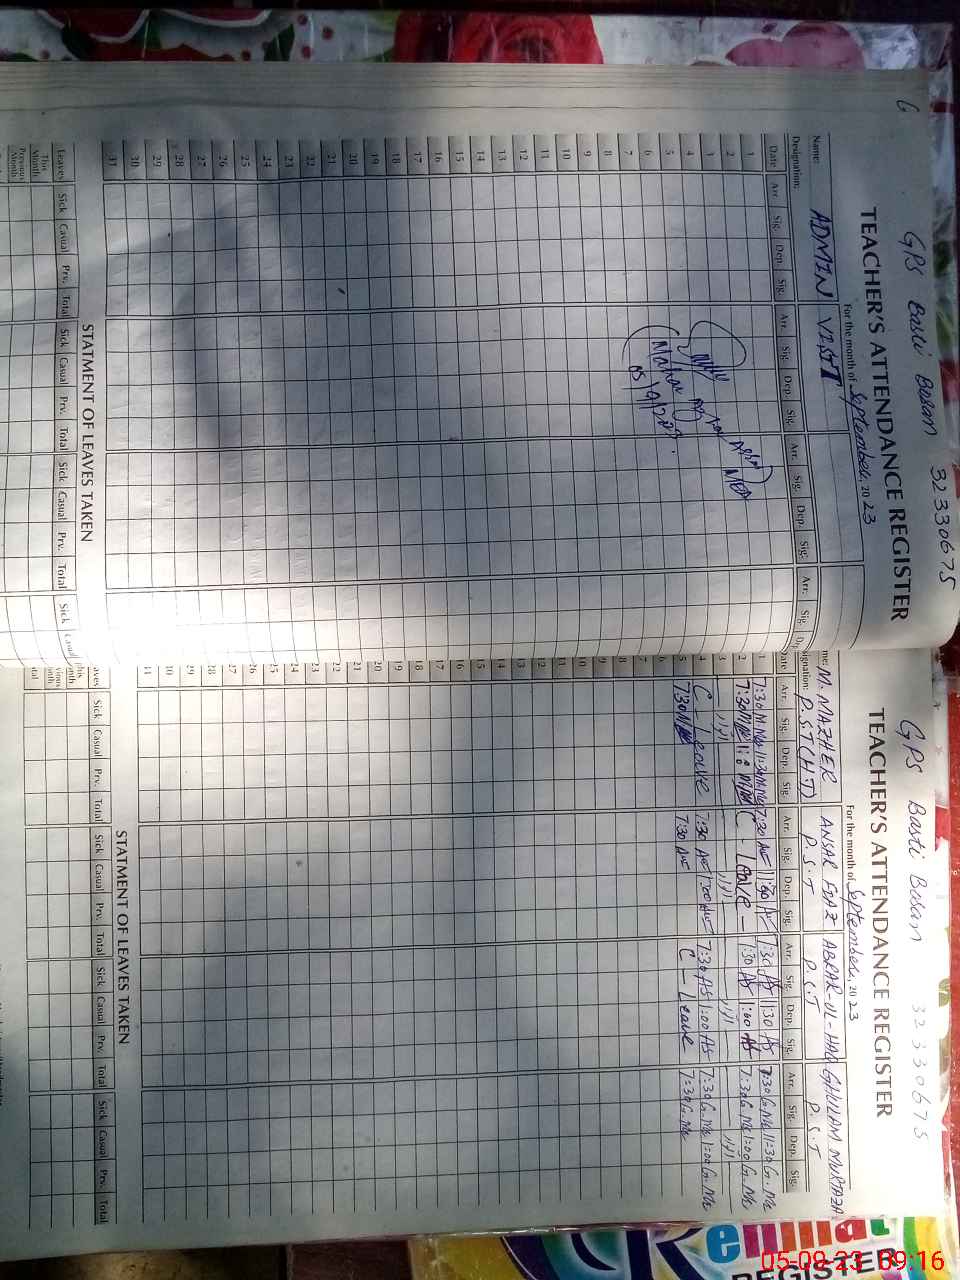 6
GPS Basti Bosan 32330675
TEACHER'S ATTENDANCE REGISTER
For the month of September, 2023
Name: ADMIN VISIT
Designation:
Date Arr. Sig. Dep. Sig. Arr. Sig. Dep. Sig. Arr. Sig. Dep. Sig. Arr. Sig.
1
2
3
4
5
6
7
8
9
10
11
12
13
14
15
16
17
18
19
20
21
22
23
24
25
26
27
28
29
30
31
MEA
05/9/23
STATMENT OF LEAVES TAKEN
Leaves Sick Casual Prv. Total Sick Casual Prv. Total Sick Casual Prv. Total Sick Casual
This Month
Previous Month
GPS Basti Bosan 32330675
TEACHER'S ATTENDANCE REGISTER
For the month of September, 2023
me: M. MAZHER ANSAR FIAZ ABRAR-UL-HAQ GHULAM MURTAZA
signation: P.S.T (H.T) P.S.T P.S.T P.S.T
Date Arr. Sig. Dep. Sig. Arr. Sig. Dep. Sig. Arr. Sig. Dep. Sig. Arr. Sig. Dep. Sig.
1 7:30 11:30 7:30 11:30 7:30 11:30 7:30 G.Mu 11:30 G.Mu
2 7:30 C - Leave - 7:30 1:00 7:30 G.Mu 1:00 G.Mu
3
4 C - Leave 7:30 1:00 7:30 1:00 7:30 G.Mu 1:00 G.Mu
5 7:30 7:30 C - Leave 7:30 G.Mu
6
7
8
9
10
11
12
13
14
15
16
17
18
19
20
21
22
23
24
25
26
27
28
29
30
31
STATMENT OF LEAVES TAKEN
aves Sick Casual Prv. Total Sick Casual Prv. Total Sick Casual Prv. Total Sick Casual Prv. Total
REGISTER
05-09-23 09:16